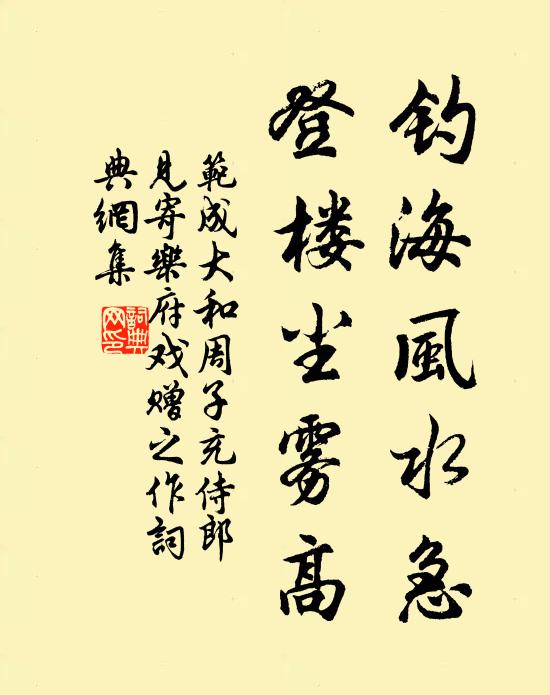 钓海風水急
登楼尘雾高
範成大和周子充侍郎
見寄樂府戏贈之作詞
典網集
詞典
网印